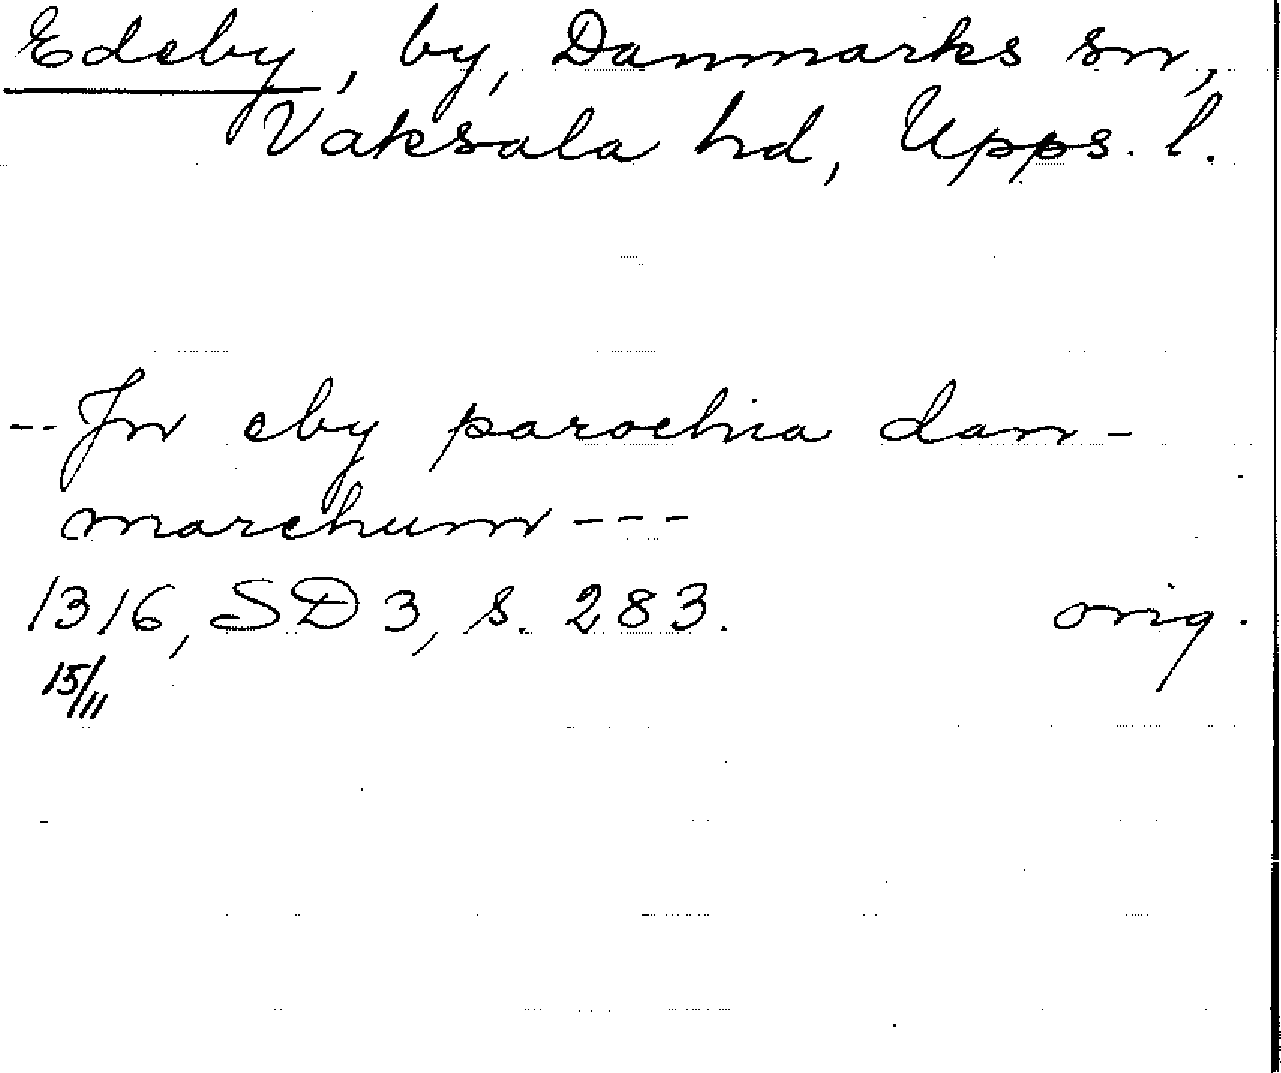 Edeby, by, Danmarks sn,
Vaksala hd, Upps. l.
-- Jn eby parochia dan-
marchum ---
1316, SD 3, s. 283. orig.
15/11